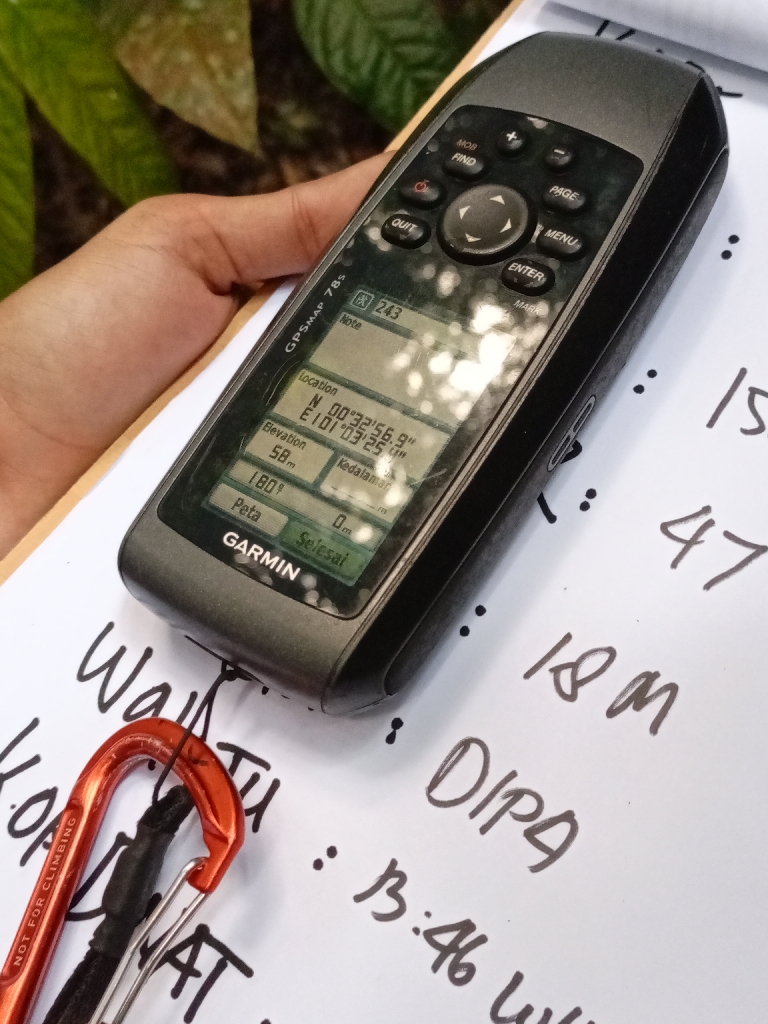 +
-
MOB
FIND
PAGE
QUIT
MENU
ENTER
MARK
GPSMAP 78s
243
Note
Location
N 00°32'56.9"
E101°03'25
Elevation
58m
Kedalaman
m
180°
0m
Peta
Selesai
GARMIN
:
:
:
47
:
18 M
:
DIPA
:
B:46
NOT FOR CLIMBING